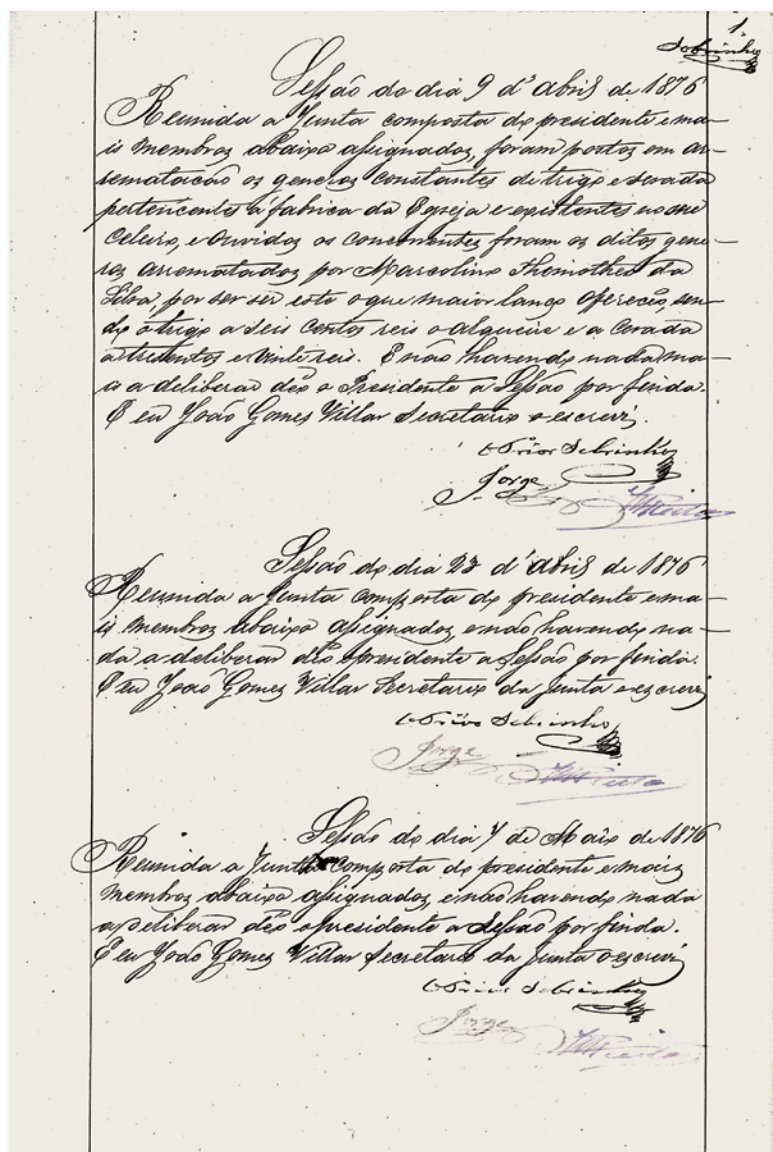 1.
Sobrinho
Sessão do dia 9 d'Abril de 1876
Reunida a Junta composta do presidente e ma-
is membros abaixo assignados, foram postos em ar-
rematacão os generos constantes de trigo e sevada
pertencentes á fabrica da Egreja e existentes no seu
Celeiro, e ouvidos os concorrentes foram os ditos gene-
ros arrematados por Marcolino Thimotheo da
Silva, por ser ser este o que maior lanço offereceo, sen-
do o trigo a seis centos reis o alqueire e a cevada
a trezentos e vinte reis. E não havendo nada ma-
is a deliberar deo o Presidente a Sessão por finda.
E eu João Gomes Villar Secretario o escrevi.
O Prior Sobrinho
Jorge
Sessão do dia 23 d'Abril de 1876
Reunida a Junta composta do presidente e ma-
is membros abaixo assignados, e não havendo na-
da a deliberar deo o presidente a Sessão por finda.
E eu João Gomes Villar Secretario da Junta o escrevi
O Prior Sobrinho
Jorge
Sessão do dia 7 de Maio de 1876
Reunida a Junta composta do presidente e mais
membros abaixo assignados, e não havendo nada
a deliberar deo o presidente a Sessão por finda.
E eu João Gomes Villar Secretario da Junta o escrevi
O Prior Sobrinho
Jorge